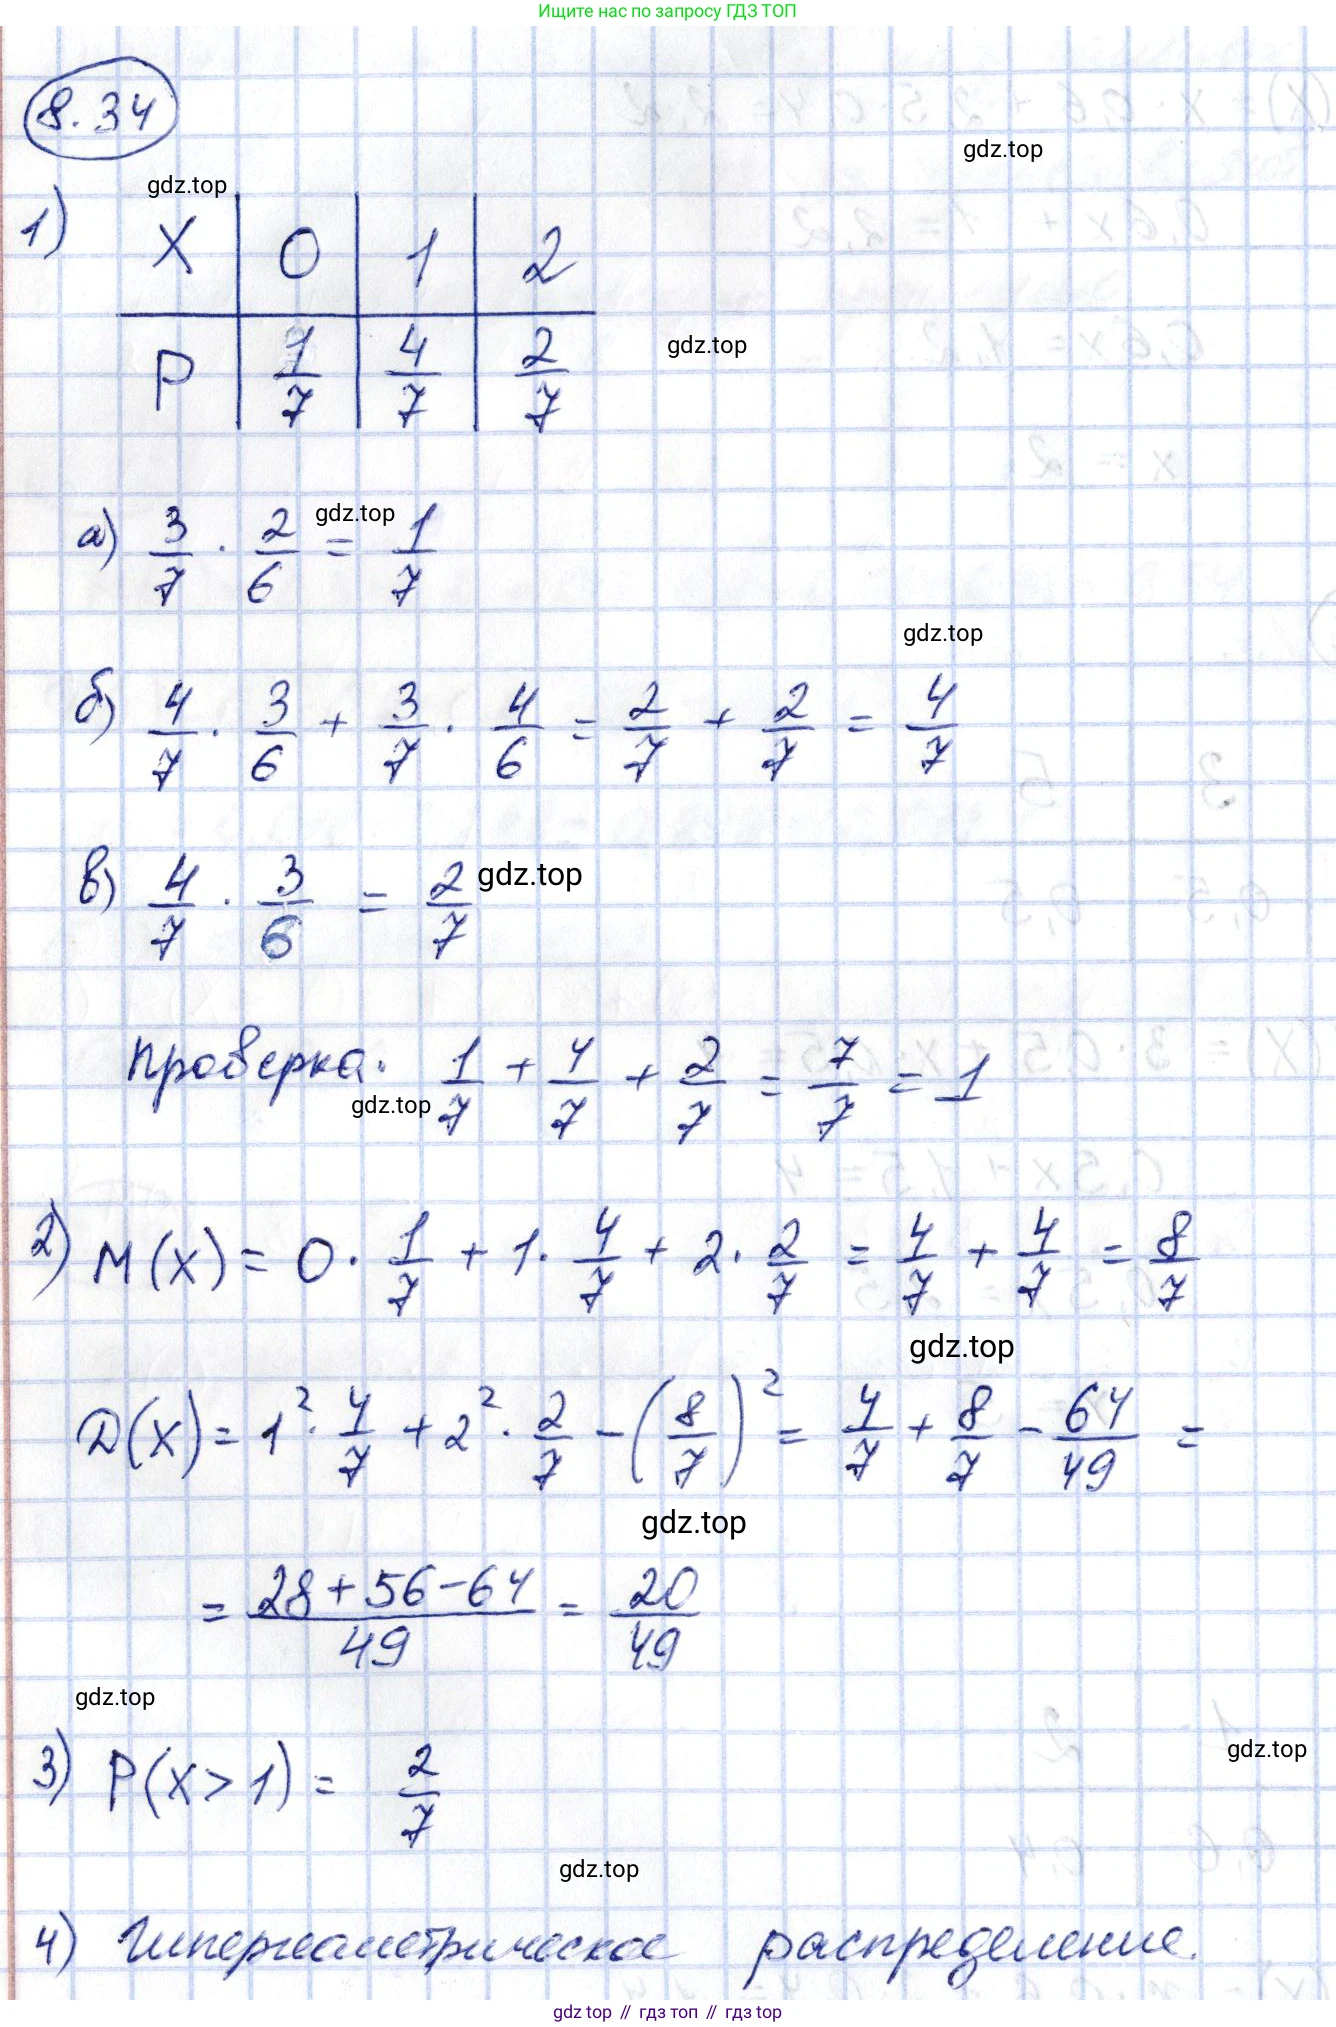 Ищите нас по запросу ГДЗ ТОП
8.34
gdz.top
gdz.top
1) X | 0 | 1 | 2
P | 1/7 | 4/7 | 2/7
gdz.top
gdz.top
а) 3/7 · 2/6 = 1/7
gdz.top
б) 4/7 · 3/6 + 3/7 · 4/6 = 2/7 + 2/7 = 4/7
в) 4/7 · 3/6 = 2/7
gdz.top
Проверка. 1/7 + 4/7 + 2/7 = 7/7 = 1
gdz.top
2) M(X) = 0 · 1/7 + 1 · 4/7 + 2 · 2/7 = 4/7 + 4/7 = 8/7
gdz.top
D(X) = 1² · 4/7 + 2² · 2/7 - (8/7)² = 4/7 + 8/7 - 64/49 =
gdz.top
= (28+56-64)/49 = 20/49
gdz.top
gdz.top
3) P(X > 1) = 2/7
gdz.top
4) Гипергеометрическое распределение.
gdz top // гдз топ // гдз top